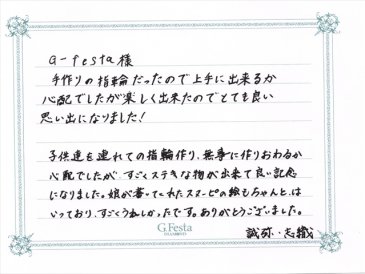 G-festa 様
手作りの指輪だったので上手に出来るか
心配でしたが楽しく出来たのでとても良い
思い出になりました!
子供達を連れての指輪作り、無事に作りおわるか
心配でしたが、すごくステキな物が出来て良い記念
になりました。娘が書いてくれたスヌーピーの絵もちゃんとは
いっており、すごくうれしかったです。ありがとうございました。
G.Festa
DIAMOND
誠弥・志織